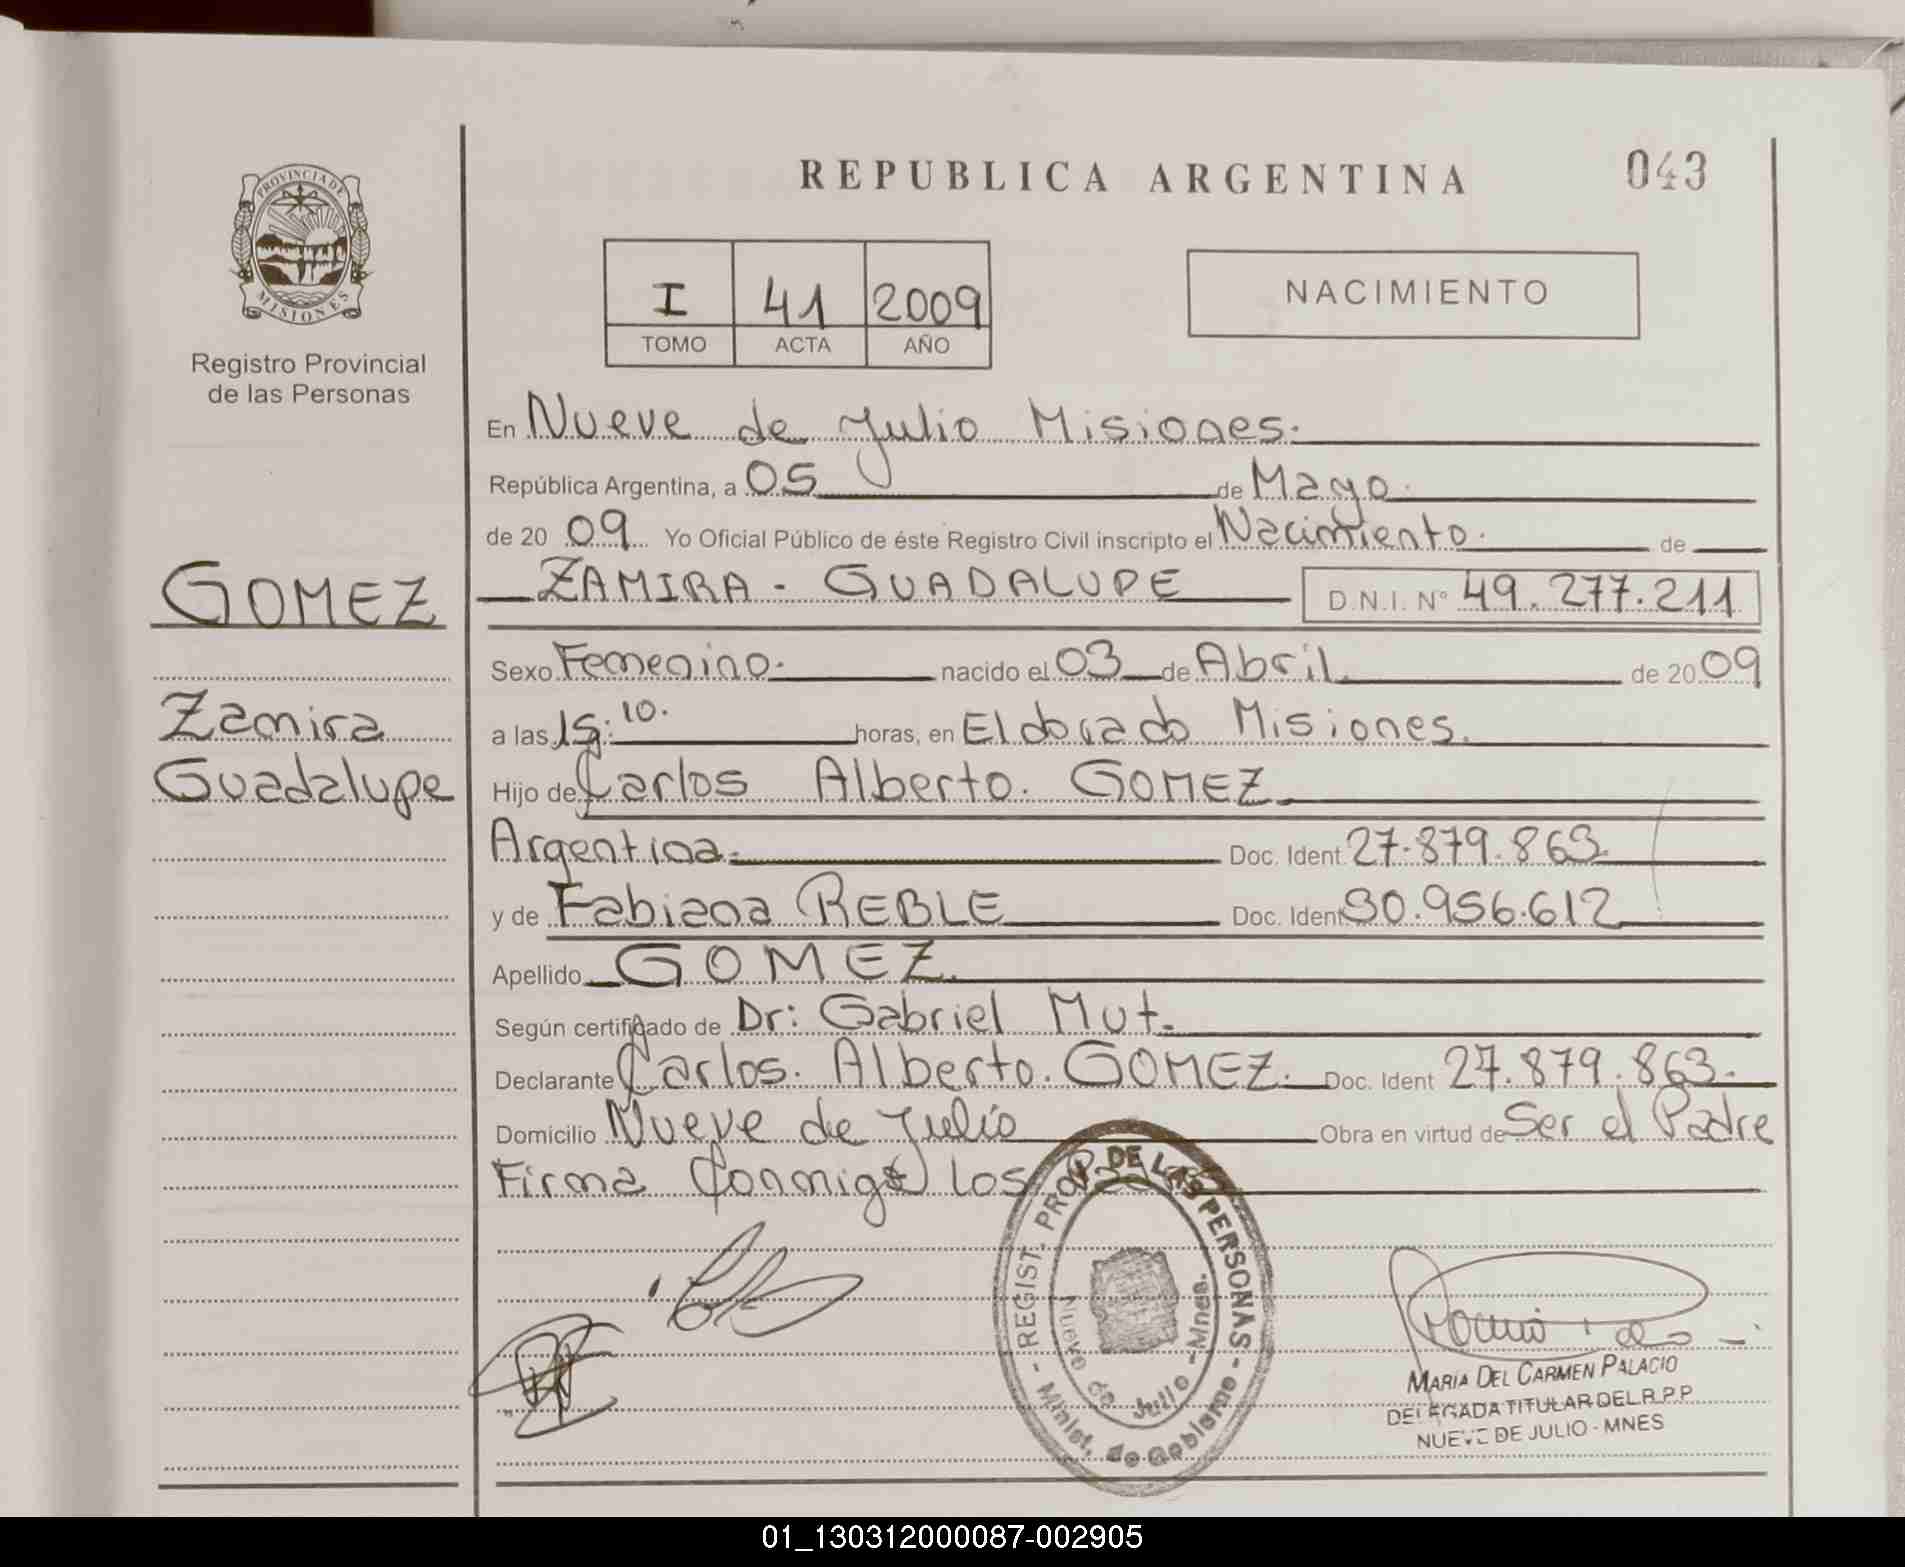 REPUBLICA ARGENTINA
043
PROVINCIA DE
MISIONES
Registro Provincial
de las Personas
I 41 2009
TOMO ACTA AÑO
NACIMIENTO
En Nueve de Julio Misiones.
República Argentina, a 05 de Mayo.
de 20 09 Yo Oficial Público de éste Registro Civil inscripto el Nacimiento. de
GOMEZ
ZAMIRA - GUADALUPE D.N.I. Nº 49.277.211
Sexo Femenino. nacido el 03 de Abril. de 20 09
Zamira
a las 15:10. horas, en Eldorado Misiones.
Guadalupe
Hijo de Carlos Alberto. GOMEZ.
Argentina. Doc. Ident. 27.879.863.
y de Fabiana REBLE Doc. Ident. 30.956.612
Apellido GOMEZ.
Según certificado de Dr: Gabriel Mut.
Declarante Carlos. Alberto. GOMEZ. Doc. Ident 27.879.863.
Domicilio Nueve de Julio Obra en virtud de Ser el Padre
Firma Conmigo los
- REGIST. PROV. DE LAS PERSONAS -
Minist. de Gobierno
Nueve de Julio - Mnes.
MARIA DEL CARMEN PALACIO
DELEGADA TITULAR DEL R.P.P
NUEVE DE JULIO - MNES
01_130312000087-002905